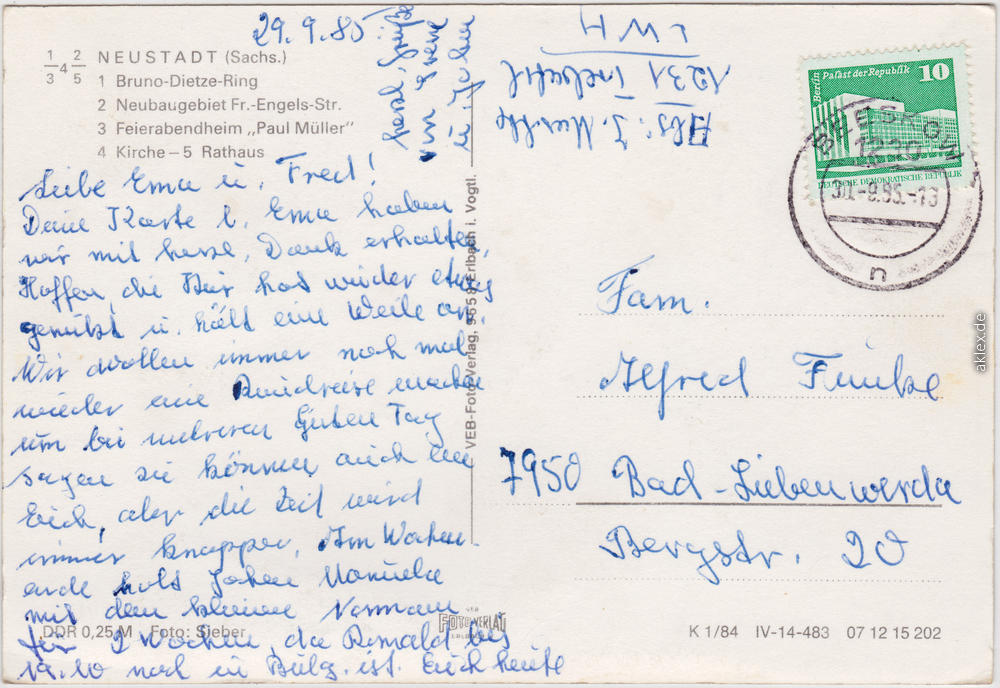 29.9.85
1/3 4 2/5 NEUSTADT (Sachs.)
1 Bruno-Dietze-Ring
2 Neubaugebiet Fr.-Engels-Str.
3 Feierabendheim „Paul Müller"
4 Kirche – 5 Rathaus
Liebe Erna u. Fred!
Deine Karte l. Erna haben
wir mit herzl. Dank erhalten,
Hoffen, die Kur hat wieder etwas
genützt u. hält eine Weile an.
Wir wollen immer noch mal
wieder eine Rundreise machen
um bei mehreren Guten Tag
sagen zu können, auch bei
Euch, aber die Zeit wird
immer knapper. Am Wochen-
ende holt Jochen Manuela
mit dem kleinen Normann
für 2 Wochen, da Ronald bis
19.10 noch in Bulg. ist. Euch heute
herzl. Grüße
von
u. Jochen
DDR 0,25 M Foto: Sieber
VEB-Foto-Verlag, 9658 Erlbach i. Vogtl.
VEB
FOTO-VERLAG
ERLBACH
K 1/84 IV-14-483 07 12 15 202
Abs: J.
1231
LWH
Berlin Palast der Republik 10
DEUTSCHE DEMOKRATISCHE REPUBLIK
BEESKOW
1230
30.-9.85.-13
n
Fam.
Alfred Funke
7950 Bad-Liebenwerda
Bergstr. 20
aklex.de